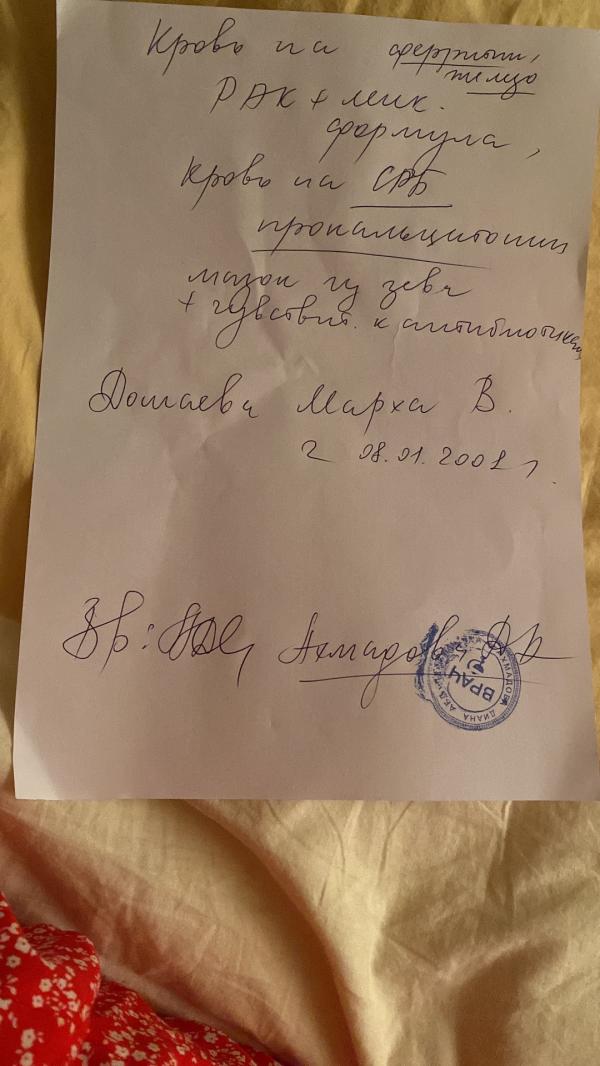 Кровь на ферритин,
железо
РАК + лейк.
формула,
Кровь на СРБ
прокальцитонин
мазок из зева
+ чувствит. к антибиотикам
Домаева Марха В.
08.01.2001 г.
Вр: Ахмадова
ВРАЧ
ДИАНА АХМАДОВА